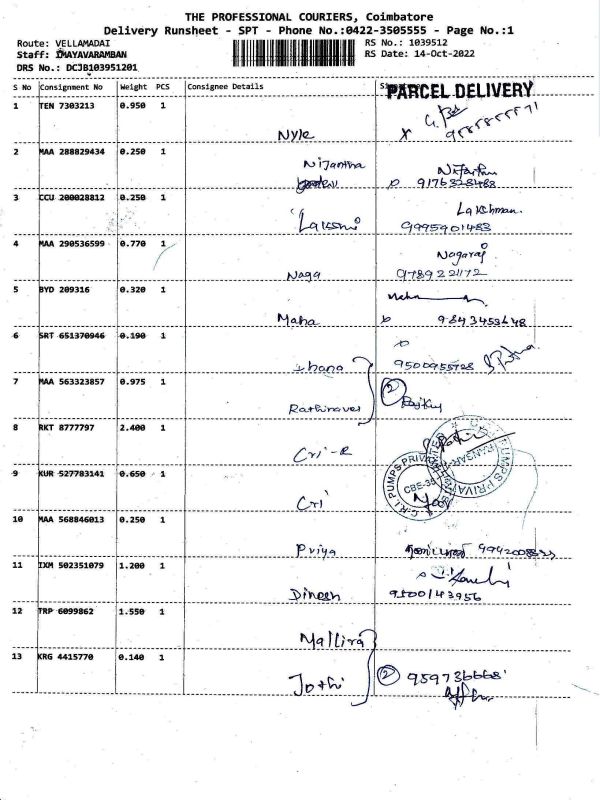 THE PROFESSIONAL COURIERS, Coimbatore
Delivery Runsheet - SPT - Phone No.:0422-3505555 - Page No.:1
Route: VELLAMADAI RS No.: 1039512
Staff: IMAYAVARAMBAN RS Date: 14-Oct-2022
DRS No.: DCJB103951201
S No Consignment No Weight PCS Consignee Details
PARCEL DELIVERY
1 TEN 7303213 0.950 1
Nyle
2 MAA 288829434 0.250 1
Nijantha
9176328488
3 CCU 200028812 0.250 1
Lakshmi
Lakshman.
9995901483
4 MAA 290536599 0.770 1
Naga
Nagaraj
9789221172
5 BYD 209316 0.320 1
Maha
9843453648
6 SRT 651370946 0.190 1
Dhana
9500955728
7 MAA 563323857 0.975 1
Rathinavel
2 Rajkuj
8 RKT 8777797 2.400 1
Cri-R
9 KUR 527783141 0.650 1
Cri
C.R.I. PUMPS PRIVATE LIMITED
CBE-35
10 MAA 568846013 0.250 1
Priya
11 IXM 502351079 1.200 1
Dinesh
9500143956
12 TRP 6099862 1.550 1
Mallira
13 KRG 4415770 0.140 1
Jothi
2 959736668